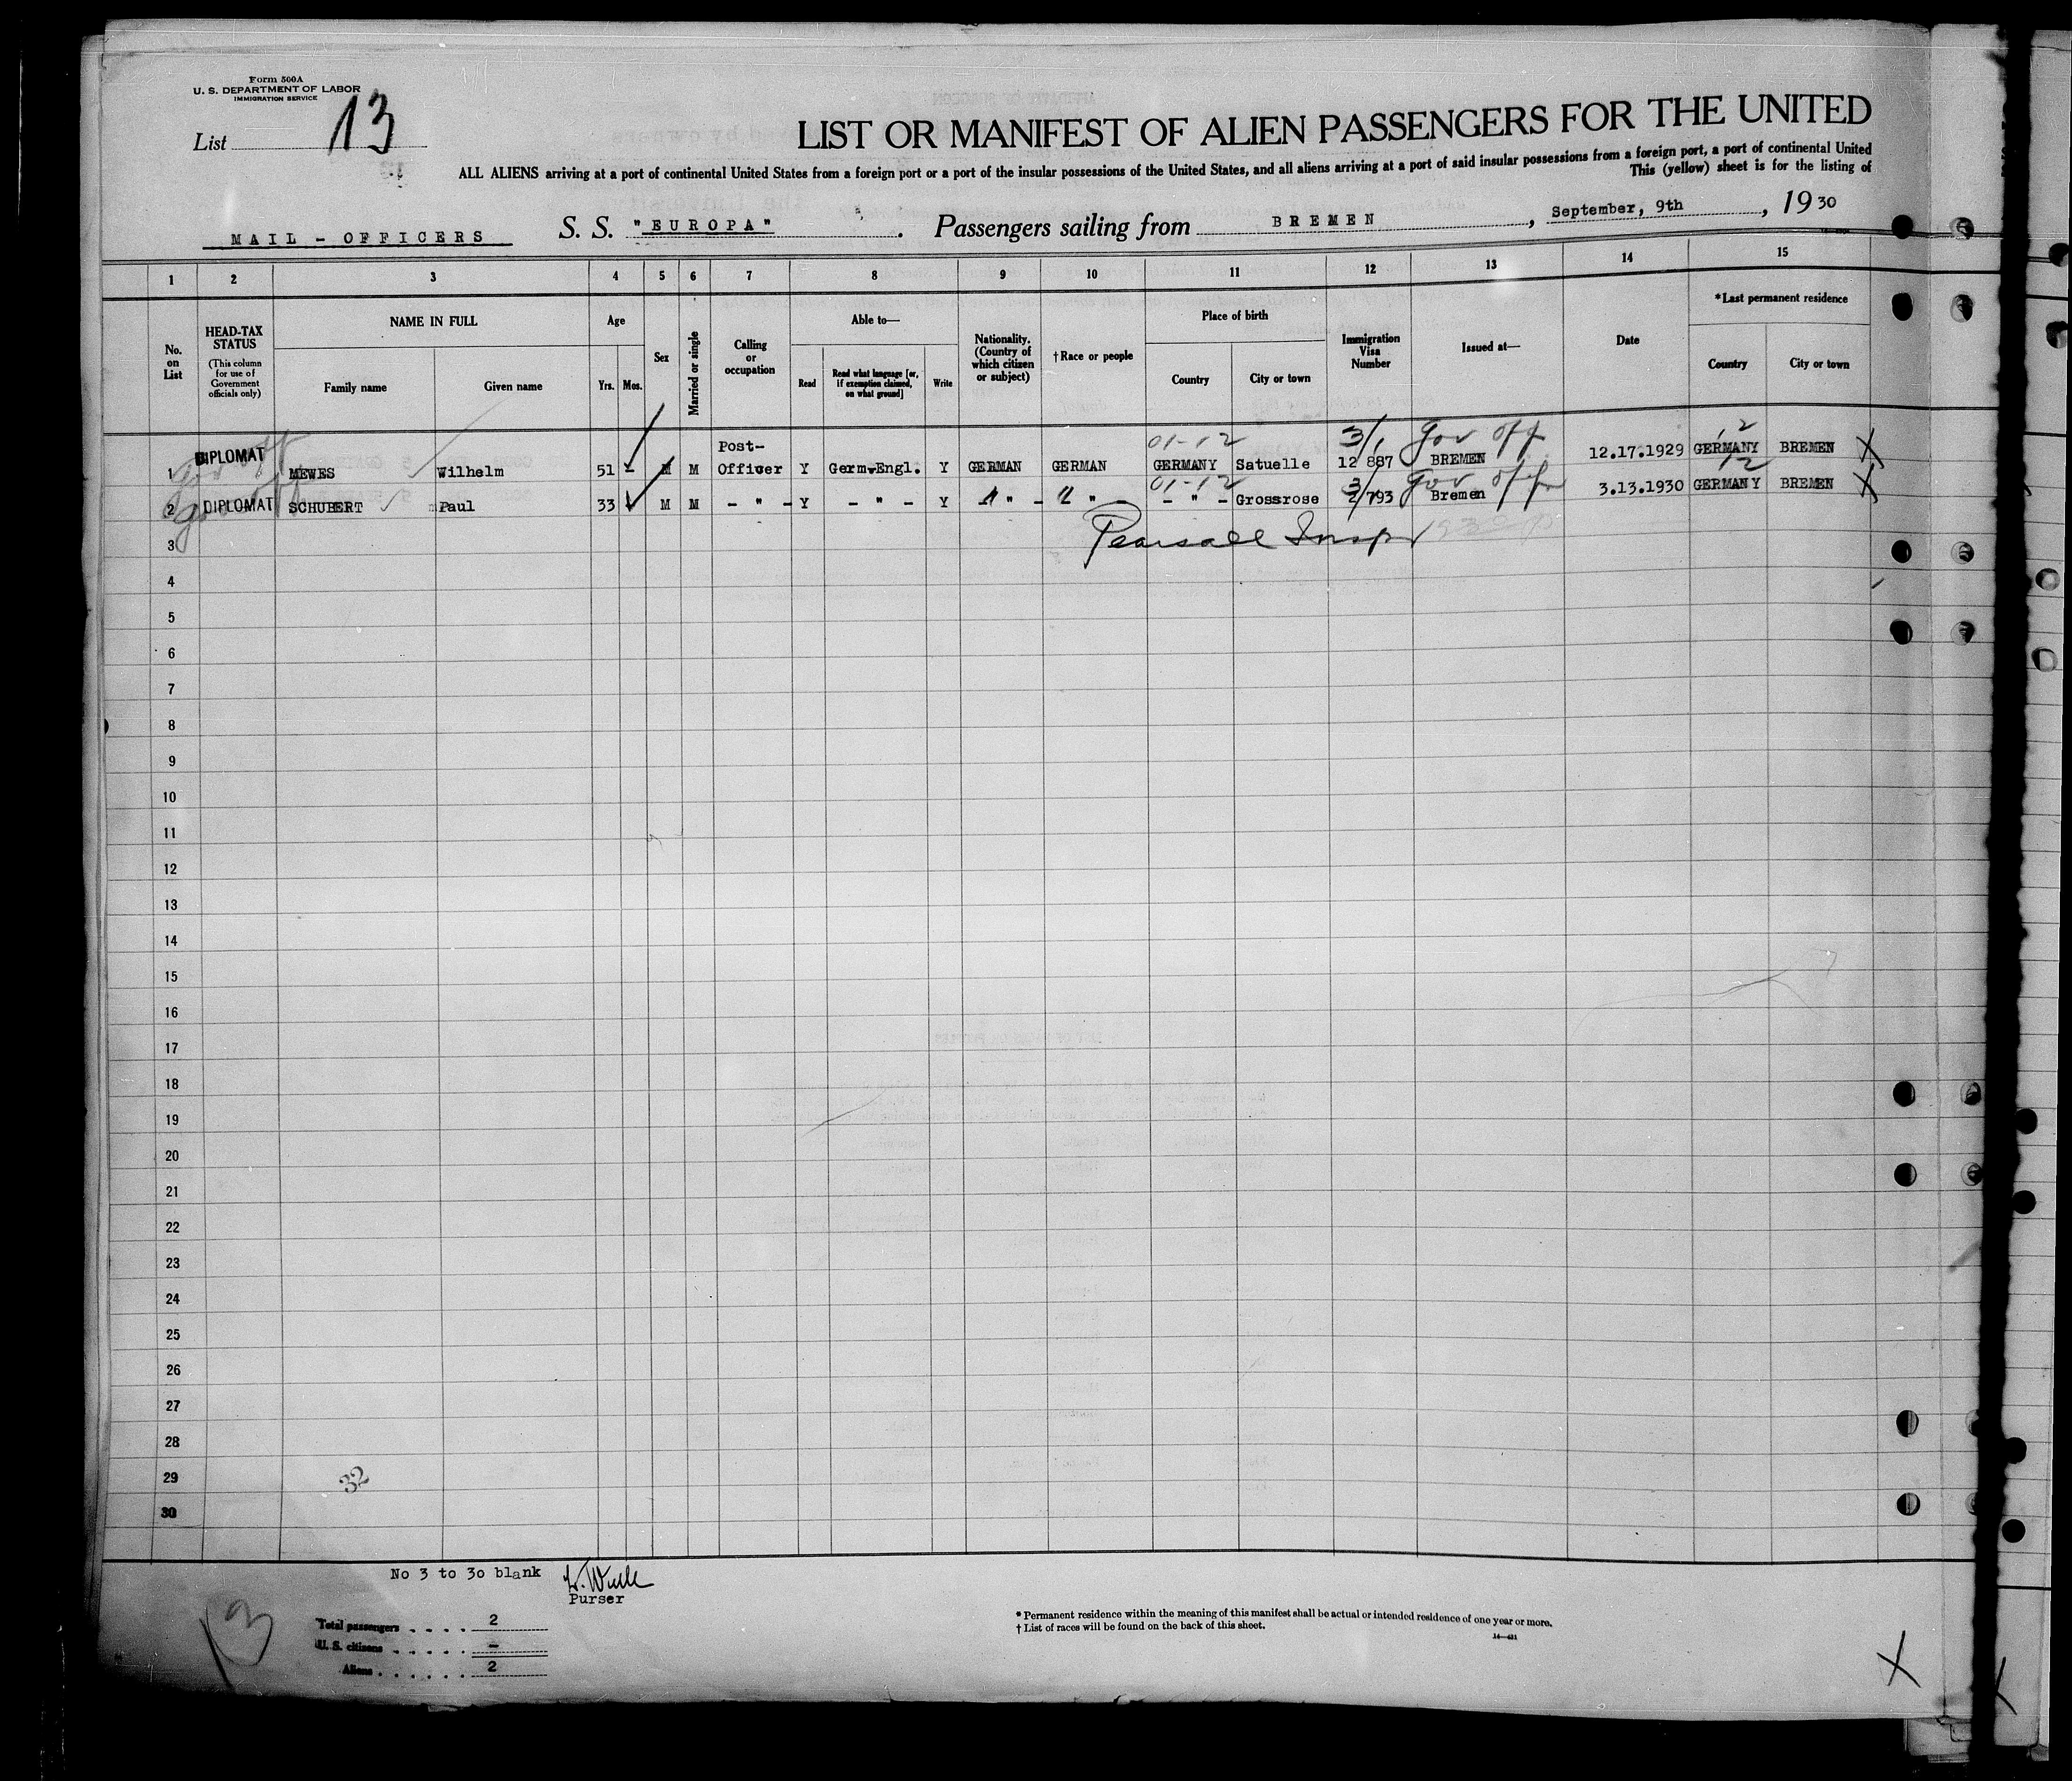 Form 500A
U. S. DEPARTMENT OF LABOR
IMMIGRATION SERVICE
List 13
LIST OR MANIFEST OF ALIEN PASSENGERS FOR THE UNITED
ALL ALIENS arriving at a port of continental United States from a foreign port or a port of the insular possessions of the United States, and all aliens arriving at a port of said insular possessions from a foreign port, a port of continental United
This (yellow) sheet is for the listing of
MAIL - OFFICERS S. S. "EUROPA" . Passengers sailing from BREMEN , September, 9th , 19 30
1 2 3 4 5 6 7 8 9 10 11 12 13 14 15
No. on List
HEAD-TAX STATUS
(This column for use of Government officials only)
NAME IN FULL
Family name Given name
Age
Yrs. Mos.
Sex
Married or single
Calling or occupation
Able to—
Read Read what language [or, if exemption claimed, on what ground] Write
Nationality. (Country of which citizen or subject)
†Race or people
Place of birth
Country City or town
Immigration Visa Number
Issued at—
Date
*Last permanent residence
Country City or town
01-12 3/1 Gov off 12
1 DIPLOMAT MEWES Wilhelm 51 - M M Post-Officer Y Germ.Engl. Y GERMAN GERMAN GERMANY Satuelle 12 887 BREMEN 12.17.1929 GERMANY BREMEN X
01-12 3/ Gov off 12
2 DIPLOMAT SCHUBERT Paul 33 M M - " - Y - " - Y - " - " - - " - Grossrose 2/793 Bremen 3.13.1930 GERMANY BREMEN X
3 Pearsall Insp
4
5
6
7
8
9
10
11
12
13
14
15
16
17
18
19
20
21
22
23
24
25
26
27
28
29 32
30
No 3 to 30 blank
Purser
13
Total passengers . . . . 2
U. S. citizens . . . . . -
Aliens . . . . . . 2
* Permanent residence within the meaning of this manifest shall be actual or intended residence of one year or more.
† List of races will be found on the back of this sheet.
14—421
X